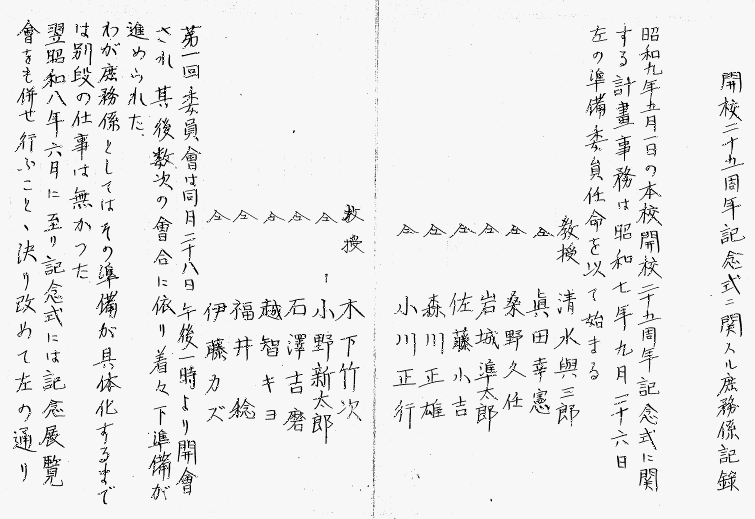 開校二十五周年記念式ニ関スル庶務係記録
昭和九年五月一日の本校開校二十五周年記念式に関
する計畫事務は昭和七年九月二十六日
左の準備委員任命を以て始まる
教授 清水與三郎
仝 眞田幸憲
仝 桑野久任
仝 岩城準太郎
仝 佐藤小吉
仝 森川正雄
仝 小川正行
教授 木下竹次
仝 小野新太郎
仝 石澤吉磨
仝 越智キヨ
仝 福井稔
仝 伊藤カズ
第一回委員會は同月二十八日午後一時より開會
され其後数次の會合に依り着々下準備が
進められた、
わが庶務係としてはその準備が具体化するまで
は別段の仕事は無かつた
翌昭和八年六月に至り記念式には記念展覧
會をも併せ行ふこと、決り改めて左の通り